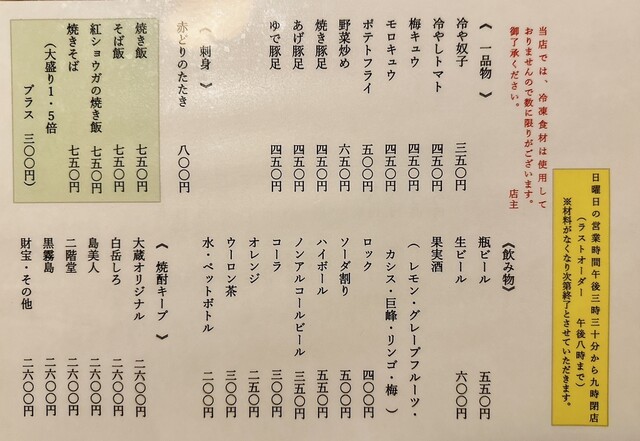 当店では、冷凍食材は使用して
おりませんので数に限りがございます。
御了承ください。 店主
《 一品物 》
冷や奴子 三五〇円
冷やしトマト 四五〇円
梅キュウ 四五〇円
モロキュウ 四五〇円
ポテトフライ 五〇〇円
野菜炒め 六五〇円
焼き豚足 四五〇円
あげ豚足 四五〇円
ゆで豚足 四五〇円
《 刺身 》
赤どりのたたき 八〇〇円
焼き飯 七五〇円
そば飯 七五〇円
紅ショウガの焼き飯 七五〇円
焼きそば 七五〇円
(大盛り1・5倍
プラス 三〇〇円)
日曜日の営業時間午後三時三十分から九時閉店
(ラストオーダー 午後八時まで)
※材料がなくなり次第終了とさせていただきます。
《飲み物》
瓶ビール 五五〇円
生ビール 六〇〇円
果実酒
( レモン・グレープフルーツ・
カシス・巨峰・リンゴ・梅 )
ロック 四〇〇円
ソーダ割り 五〇〇円
ハイボール 五五〇円
ノンアルコールビール 三五〇円
コーラ 三〇〇円
オレンジ 二五〇円
ウーロン茶 三〇〇円
水・ペットボトル 二〇〇円
《 焼酎キープ 》
大蔵オリジナル 二六〇〇円
白岳しろ 二六〇〇円
島美人 二六〇〇円
二階堂 二六〇〇円
黒霧島 二六〇〇円
財宝・その他 二六〇〇円